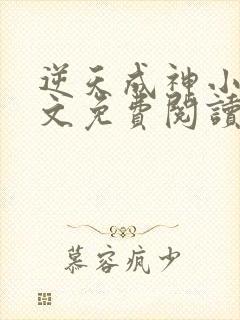 逆天成神小
文免費閱讀
慕容疯少